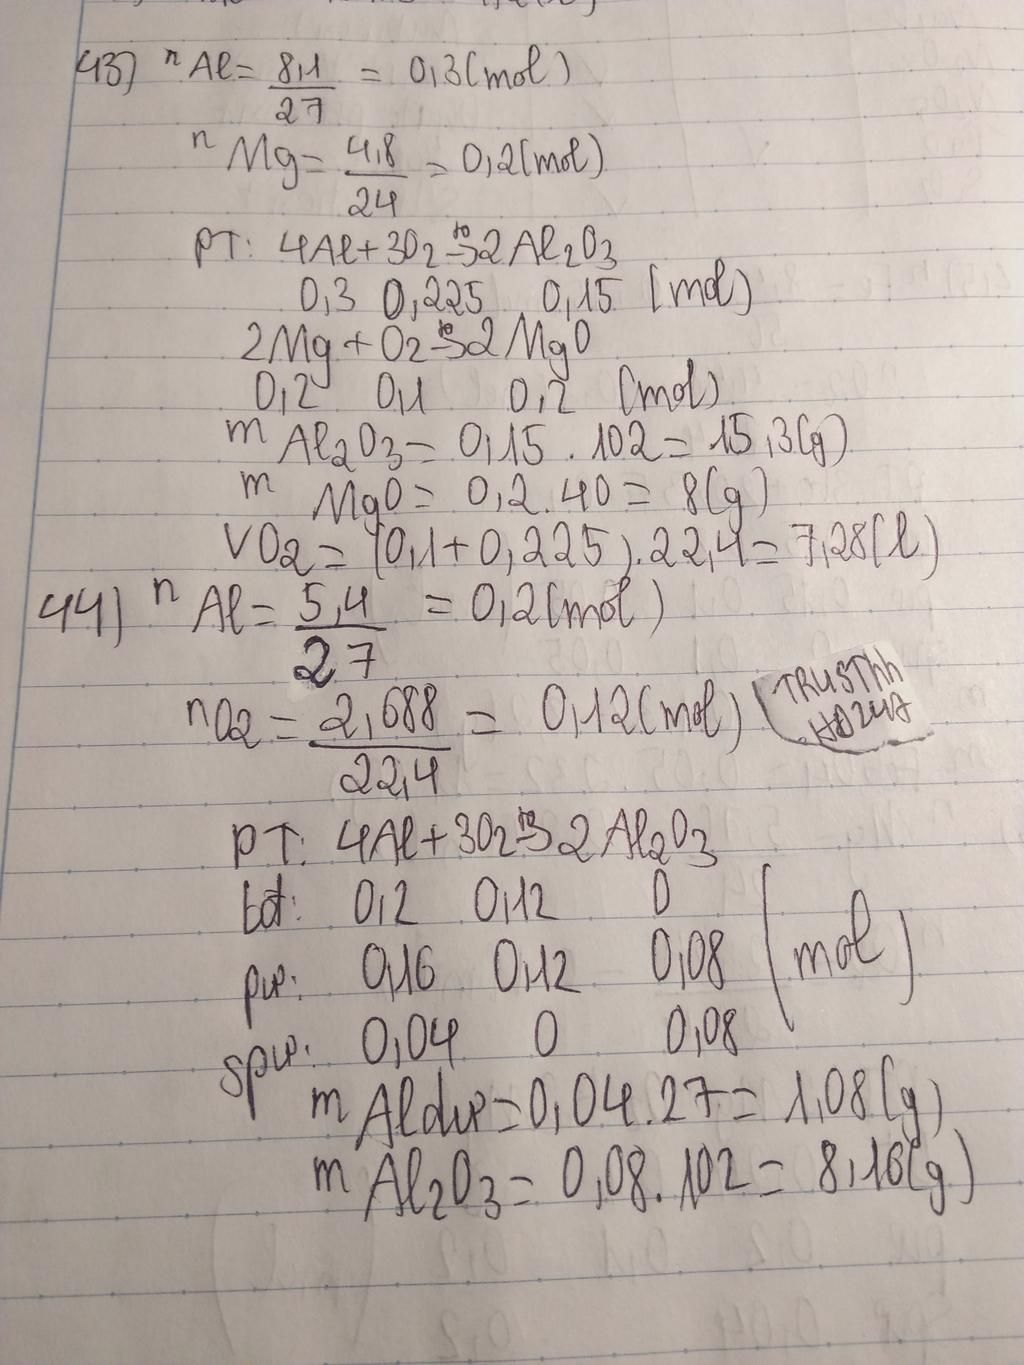 43) nAl = 8,1/27 = 0,3(mol)
nMg = 4,8/24 = 0,2(mol)
PT: 4Al + 3O2 →t° 2Al2O3
0,3 0,225 0,15 (mol)
2Mg + O2 →t° 2MgO
0,2 0,1 0,2 (mol)
mAl2O3 = 0,15 . 102 = 15,3(g)
mMgO = 0,2.40 = 8(g)
VO2 = (0,1+0,225).22,4 = 7,28(l)
44) nAl = 5,4/27 = 0,2(mol)
nO2 = 2,688/22,4 = 0,12(mol)
TRUSThh
PT: 4Al + 3O2 →t° 2Al2O3
bđ: 0,2 0,12 0
pư: 0,16 0,12 0,08 (mol)
spư: 0,04 0 0,08
mAl dư = 0,04.27 = 1,08(g)
mAl2O3 = 0,08.102 = 8,16(g)